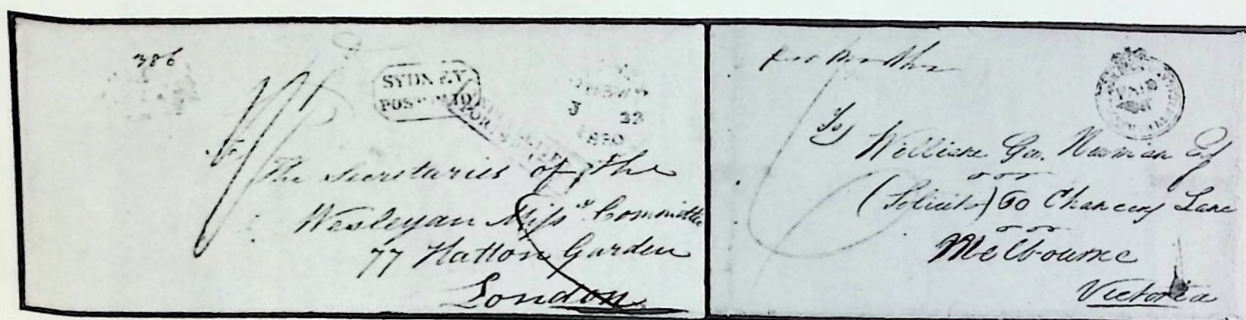 386
SYDNEY
POST PAID
3 22
1850
The Secretaries of the
Wesleyan Miss.y Committee
77 Hatton Garden
London
PAID
To
William Geo. Newman Esq
(Solicitor) 60 Chancery Lane
Melbourne
Victoria